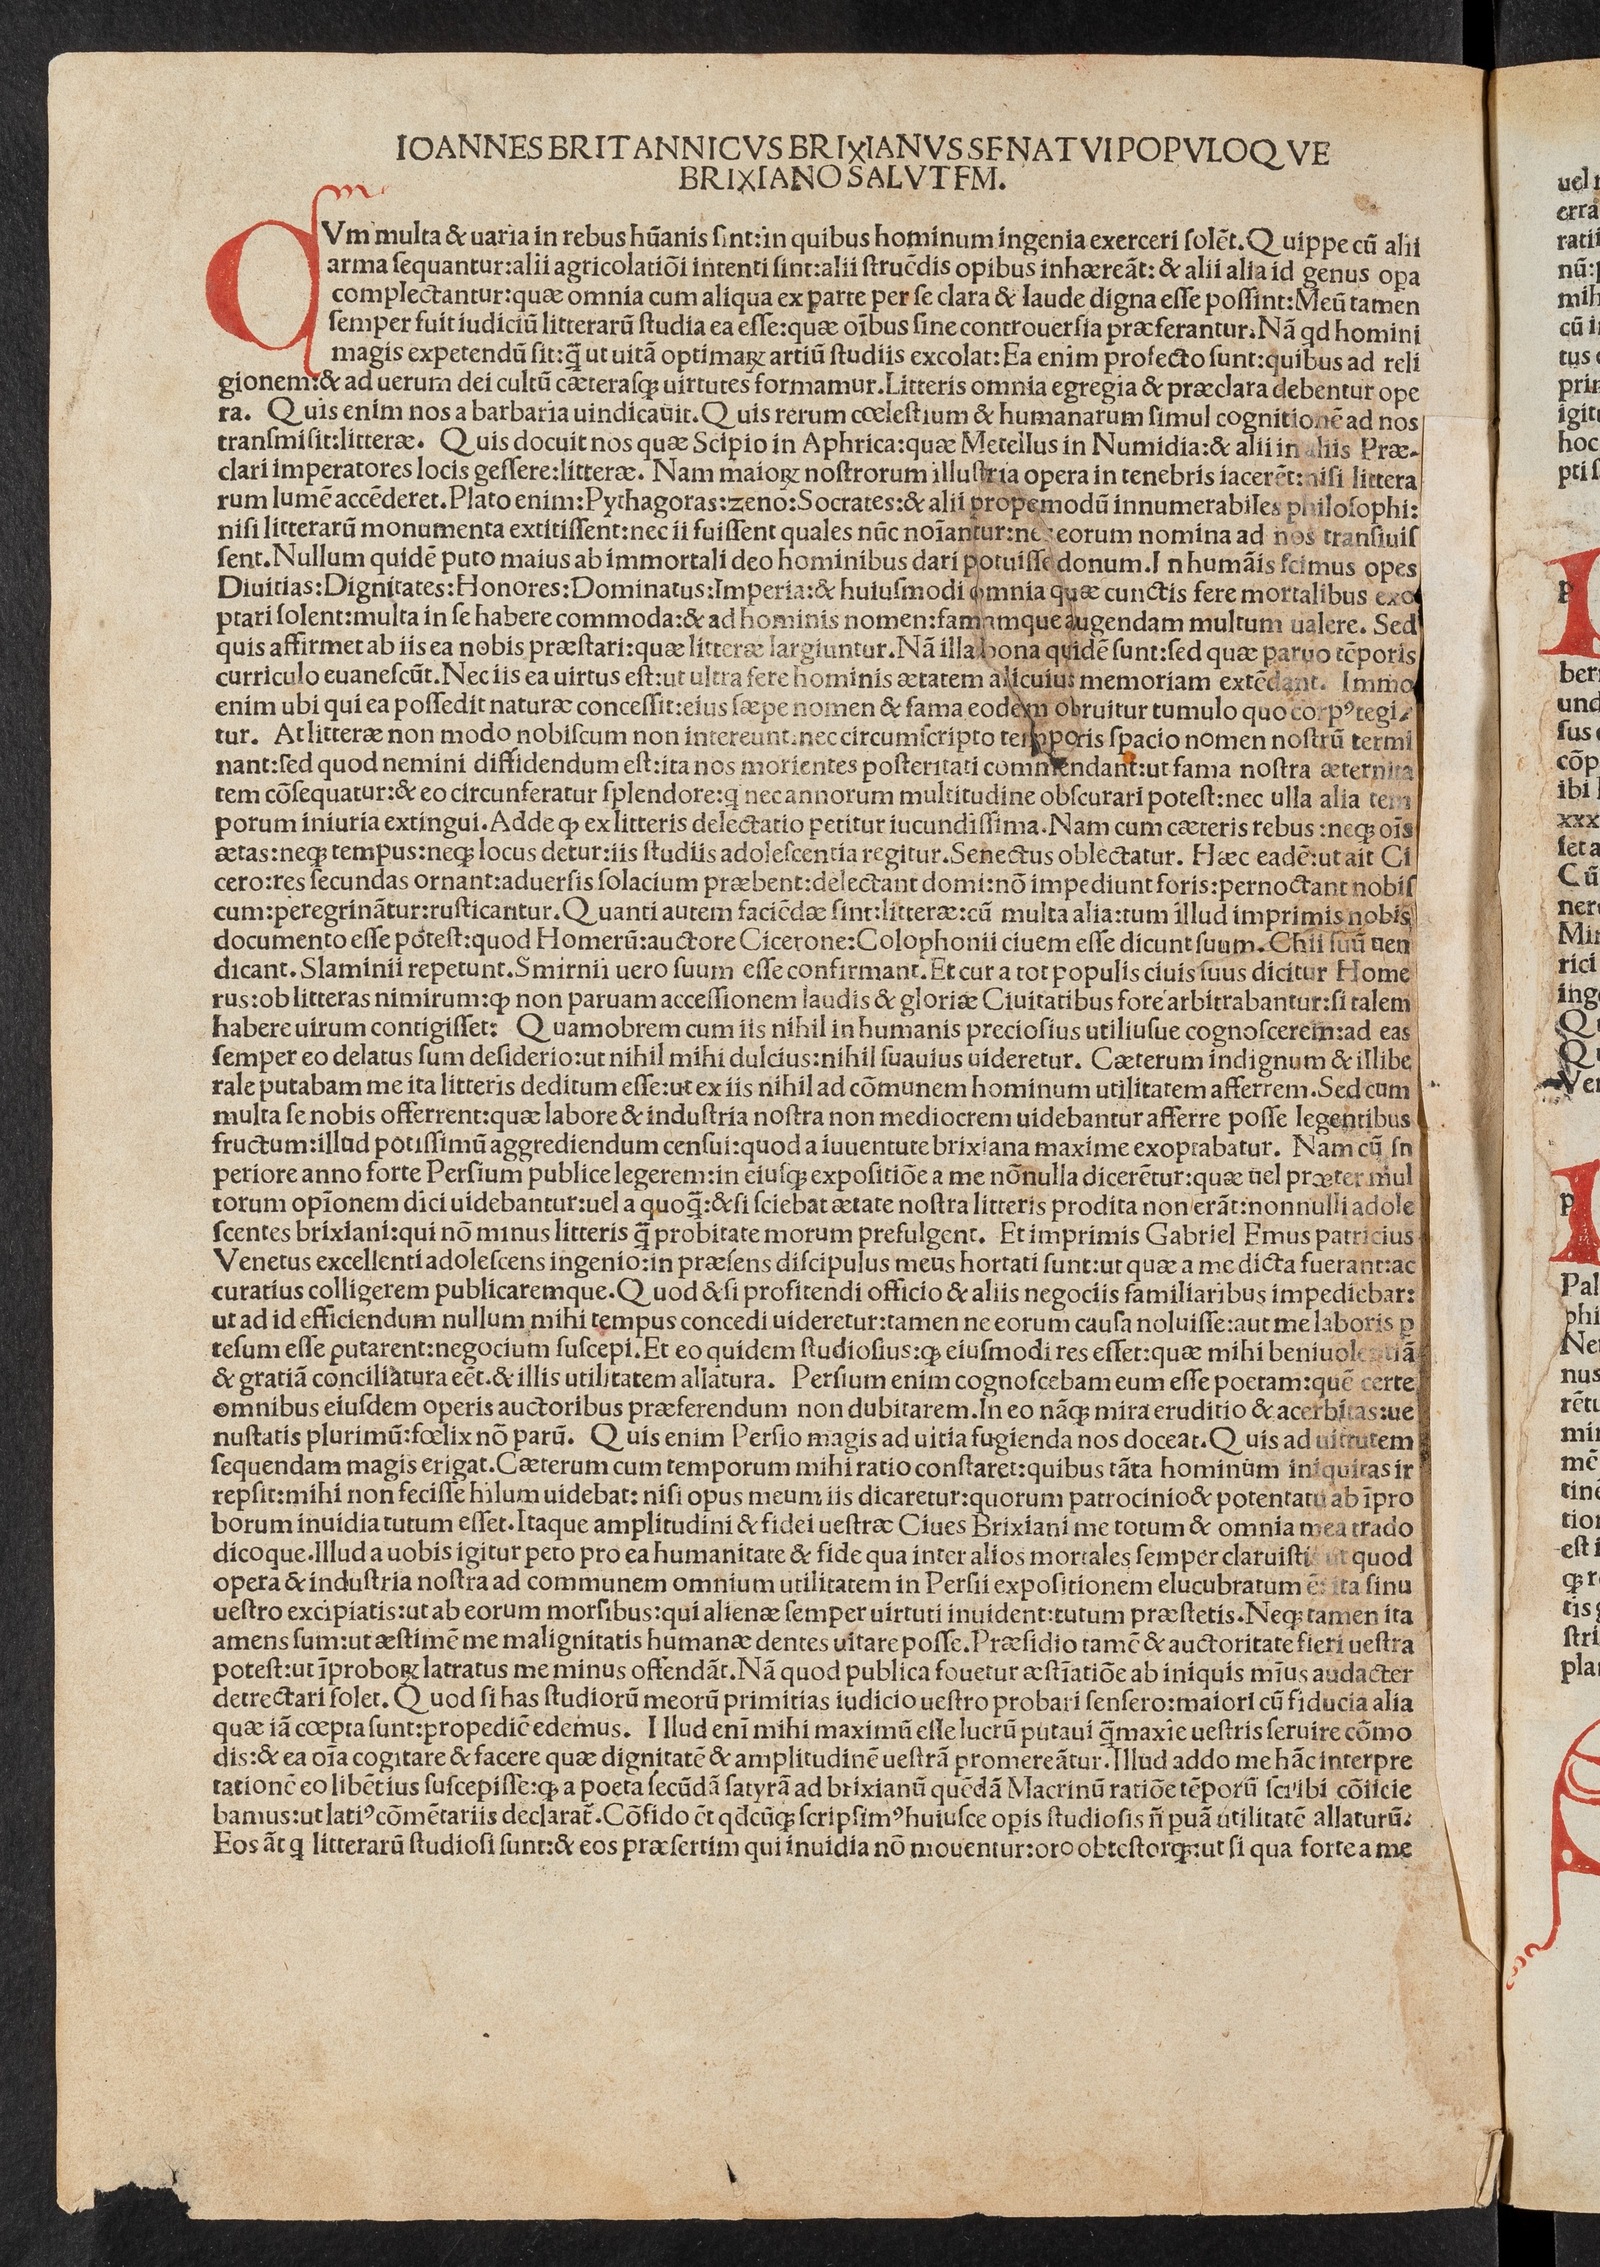 IOANNES BRITANNICVS BRIXIANVS SENATVI POPVLOQVE
BRIXIANO SALVTEM.
QVm multa & uaria in rebus hūanis sint:in quibus hominum ingenia exerceri solēt.Quippe cū alii
arma sequantur:alii agricolatiōi intenti sint:alii strucēdis opibus inhæreāt:& alii alia id genus opa
complectantur:quæ omnia cum aliqua ex parte per se clara & laude digna esse possint:Meū tamen
semper fuit iudiciū litterarū studia ea esse:quæ oībus sine controuersia præferantur.Nā qd homini
magis expetendū sit:q̄ ut uitā optimaꝝ artiū studiis excolat:Ea enim profecto sunt:quibus ad reli
gionem:& ad uerum dei cultū cæterasqꝫ uirtutes formamur.Litteris omnia egregia & præclara debentur ope
ra. Quis enim nos a barbaria uindicauit.Quis rerum cœlestium & humanarum simul cognitionē ad nos
transmisit:litteræ. Quis docuit nos quæ Scipio in Aphrica:quæ Metellus in Numidia:& alii in aliis Præ-
clari imperatores locis gessere:litteræ. Nam maioꝝ nostrorum illustria opera in tenebris iacerēt:nisi littera
rum lumē accēderet.Plato enim:Pythagoras:zeno:Socrates:& alii propemodū innumerabiles philosophi:
nisi litterarū monumenta extitissent:nec ii fuissent quales nūc noīantur:nec eorum nomina ad nos transiuis
sent.Nullum quidē puto maius ab immortali deo hominibus dari potuisse donum.In humāis scimus opes
Diuitias:Dignitates:Honores:Dominatus:Imperia:& huiusmodi omnia quæ cunctis fere mortalibus exo
ptari solent:multa in se habere commoda:& ad hominis nomen:famamque augendam multum ualere. Sed
quis affirmet ab iis ea nobis præstari:quæ litteræ largiuntur.Nā illa bona quidē sunt:sed quæ paruo tēporis
curriculo euanescūt.Nec iis ea uirtus est:ut ultra fere hominis ætatem alicuius memoriam extēdant. Immo
enim ubi qui ea possedit naturæ concessit:eius sæpe nomen & fama eodem obruitur tumulo quo corpꝰ tegi-
tur. At litteræ non modo nobiscum non intereunt:nec circumscripto temporis spacio nomen nostrū termi
nant:sed quod nemini diffidendum est:ita nos morientes posteritati commendant:ut fama nostra æternita
tem cōsequatur:& eo circunferatur splendore:q nec annorum multitudine obscurari potest:nec ulla alia tem
porum iniuria extingui.Adde qꝫ ex litteris delectatio petitur iucundissima.Nam cum cæteris rebus :neqꝫ oīs
ætas:neqꝫ tempus:neqꝫ locus detur:iis studiis adolescentia regitur.Senectus oblectatur. Hæc eadē:ut ait Ci
cero:res secundas ornant:aduersis solacium præbent:delectant domi:nō impediunt foris:pernoctant nobis
cum:peregrināτur:rusticantur.Quanti autem faciēdæ sint:litteræ:cū multa alia:tum illud imprimis nobis
documento esse potest:quod Homerū:auctore Cicerone:Colophonii ciuem esse dicunt suum.Chii suū uen
dicant.Slaminii repetunt.Smirnii uero suum esse confirmant.Et cur a tot populis ciuis suus dicitur Home
rus:ob litteras nimirum:qꝫ non paruam accessionem laudis & gloriæ Ciuitatibus fore arbitrabantur:si talem
habere uirum contigisset: Quamobrem cum iis nihil in humanis preciosius utiliusue cognoscerem:ad eas
semper eo delatus sum desiderio:ut nihil mihi dulcius:nihil suauius uideretur. Cæterum indignum & illibe
rale putabam me ita litteris deditum esse:ut ex iis nihil ad cōmunem hominum utilitatem afferrem.Sed cum
multa se nobis offerrent:quæ labore & industria nostra non mediocrem uidebantur afferre posse legentibus
fructum:illud potissimū aggrediendum censui:quod a iuuentute brixiana maxime exoptabatur. Nam cū sn
periore anno forte Persium publice legerem:in eiusqꝫ expositiōe a me nōnulla dicerētur:quæ uel præter mul
torum opīonem dici uidebantur:uel a quoq̄:& si sciebat ætate nostra litteris prodita non erāt:nonnulli adole
scentes brixiani:qui nō minus litteris q̄ probitate morum prefulgent. Et imprimis Gabriel Emus patricius
Venetus excellenti adolescens ingenio:in præsens discipulus meus hortati sunt:ut quæ a me dicta fuerant:ac
curatius colligerem publicaremque.Quod & si profitendi officio & aliis negociis familiaribus impediebar:
ut ad id efficiendum nullum mihi tempus concedi uideretur:tamen ne eorum causa noluisse:aut me laboris p
tesum esse putarent:negocium suscepi.Et eo quidem studiosius:qꝫ eiusmodi res esset:quæ mihi beniuolentiā
& gratiā conciliatura eēt.& illis utilitatem allatura. Persium enim cognoscebam eum esse poetam:quē certe
omnibus eiusdem operis auctoribus præferendum non dubitarem.In eo nāqꝫ mira eruditio & acerbitas:ue
nustatis plurimū:fœlix nō parū. Quis enim Persio magis ad uitia fugienda nos doceat.Quis ad uirtutem
sequendam magis erigat.Cæterum cum temporum mihi ratio constaret:quibus tāta hominum iniquitas ir
repsit:mihi non fecisse hilum uidebat: nisi opus meum iis dicaretur:quorum patrocinio & potentatu ab īpro
borum inuidia tutum esset.Itaque amplitudini & fidei uestræ Ciues Brixiani me totum & omnia mea trado
dicoque.Illud a uobis igitur peto pro ea humanitate & fide qua inter alios mortales semper claruistis ut quod
opera & industria nostra ad communem omnium utilitatem in Persii expositionem elucubratum ē: ita sinu
uestro excipiatis:ut ab eorum morsibus:qui alienæ semper uirtuti inuident:tutum præstetis.Neqꝫ tamen ita
amens sum:ut æstimē me malignitatis humanæ dentes uitare posse.Præsidio tamē & auctoritate fieri uestra
potest:ut īproboꝝ latratus me minus offendāt.Nā quod publica fouetur æstīatiōe ab iniquis mīus audacter
detrectari solet.Quod si has studiorū meorū primitias iudicio uestro probari sensero:maiori cū fiducia alia
quæ iā cœpta sunt:propediē edemus. Illud enī mihi maximū esse lucrū putaui q̄ maxīe uestris seruire cōmo
dis:& ea oīa cogitare & facere quæ dignitatē & amplitudinē uestrā promereātur.Illud addo me hāc interpre
tationē eo libētius suscepisse:qꝫ a poeta secūdā satyrā ad brixianū quēdā Macrinū ratiōe tēporū scribi cōiicie
bamus:ut latiꝰ cōmētariis declarat̄.Cōfido ēt qdcūqꝫ scripsimꝰ huiusce opis studiosis n̄ puā utilitatē allaturū.
Eos āt q litterarū studiosi sunt:& eos præsertim qui inuidia nō mouentur:oro obtestorqꝫ:ut si qua forte a me